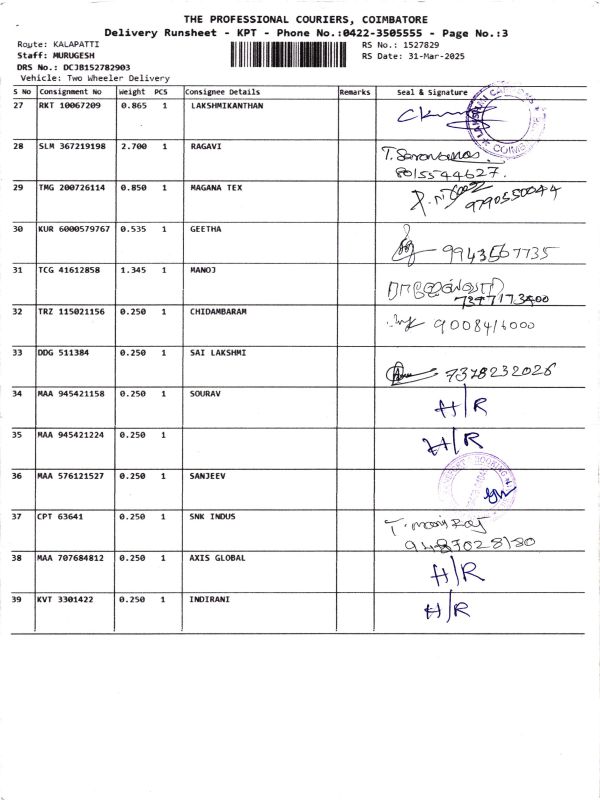 THE PROFESSIONAL COURIERS, COIMBATORE
Delivery Runsheet - KPT - Phone No.:0422-3505555 - Page No.:3
Route: KALAPATTI RS No.: 1527829
Staff: MURUGESH RS Date: 31-Mar-2025
DRS No.: DCJB152782903
Vehicle: Two Wheeler Delivery
S No Consignment No Weight PCS Consignee Details Remarks Seal & Signature
27 RKT 10067209 0.865 1 LAKSHMIKANTHAN
28 SLM 367219198 2.700 1 RAGAVI
8015544627.
29 TMG 200726114 0.850 1 MAGANA TEX
9790550044
30 KUR 6000579767 0.535 1 GEETHA 9943567735
31 TCG 41612858 1.345 1 MANOJ
32 TRZ 115021156 0.250 1 CHIDAMBARAM
33 DDG 511384 0.250 1 SAI LAKSHMI 7378232026
34 MAA 945421158 0.250 1 SOURAV H/R
35 MAA 945421224 0.250 1 H/R
36 MAA 576121527 0.250 1 SANJEEV
37 CPT 63641 0.250 1 SNK INDUS
38 MAA 707684812 0.250 1 AXIS GLOBAL H/R
39 KVT 3301422 0.250 1 INDIRANI H/R